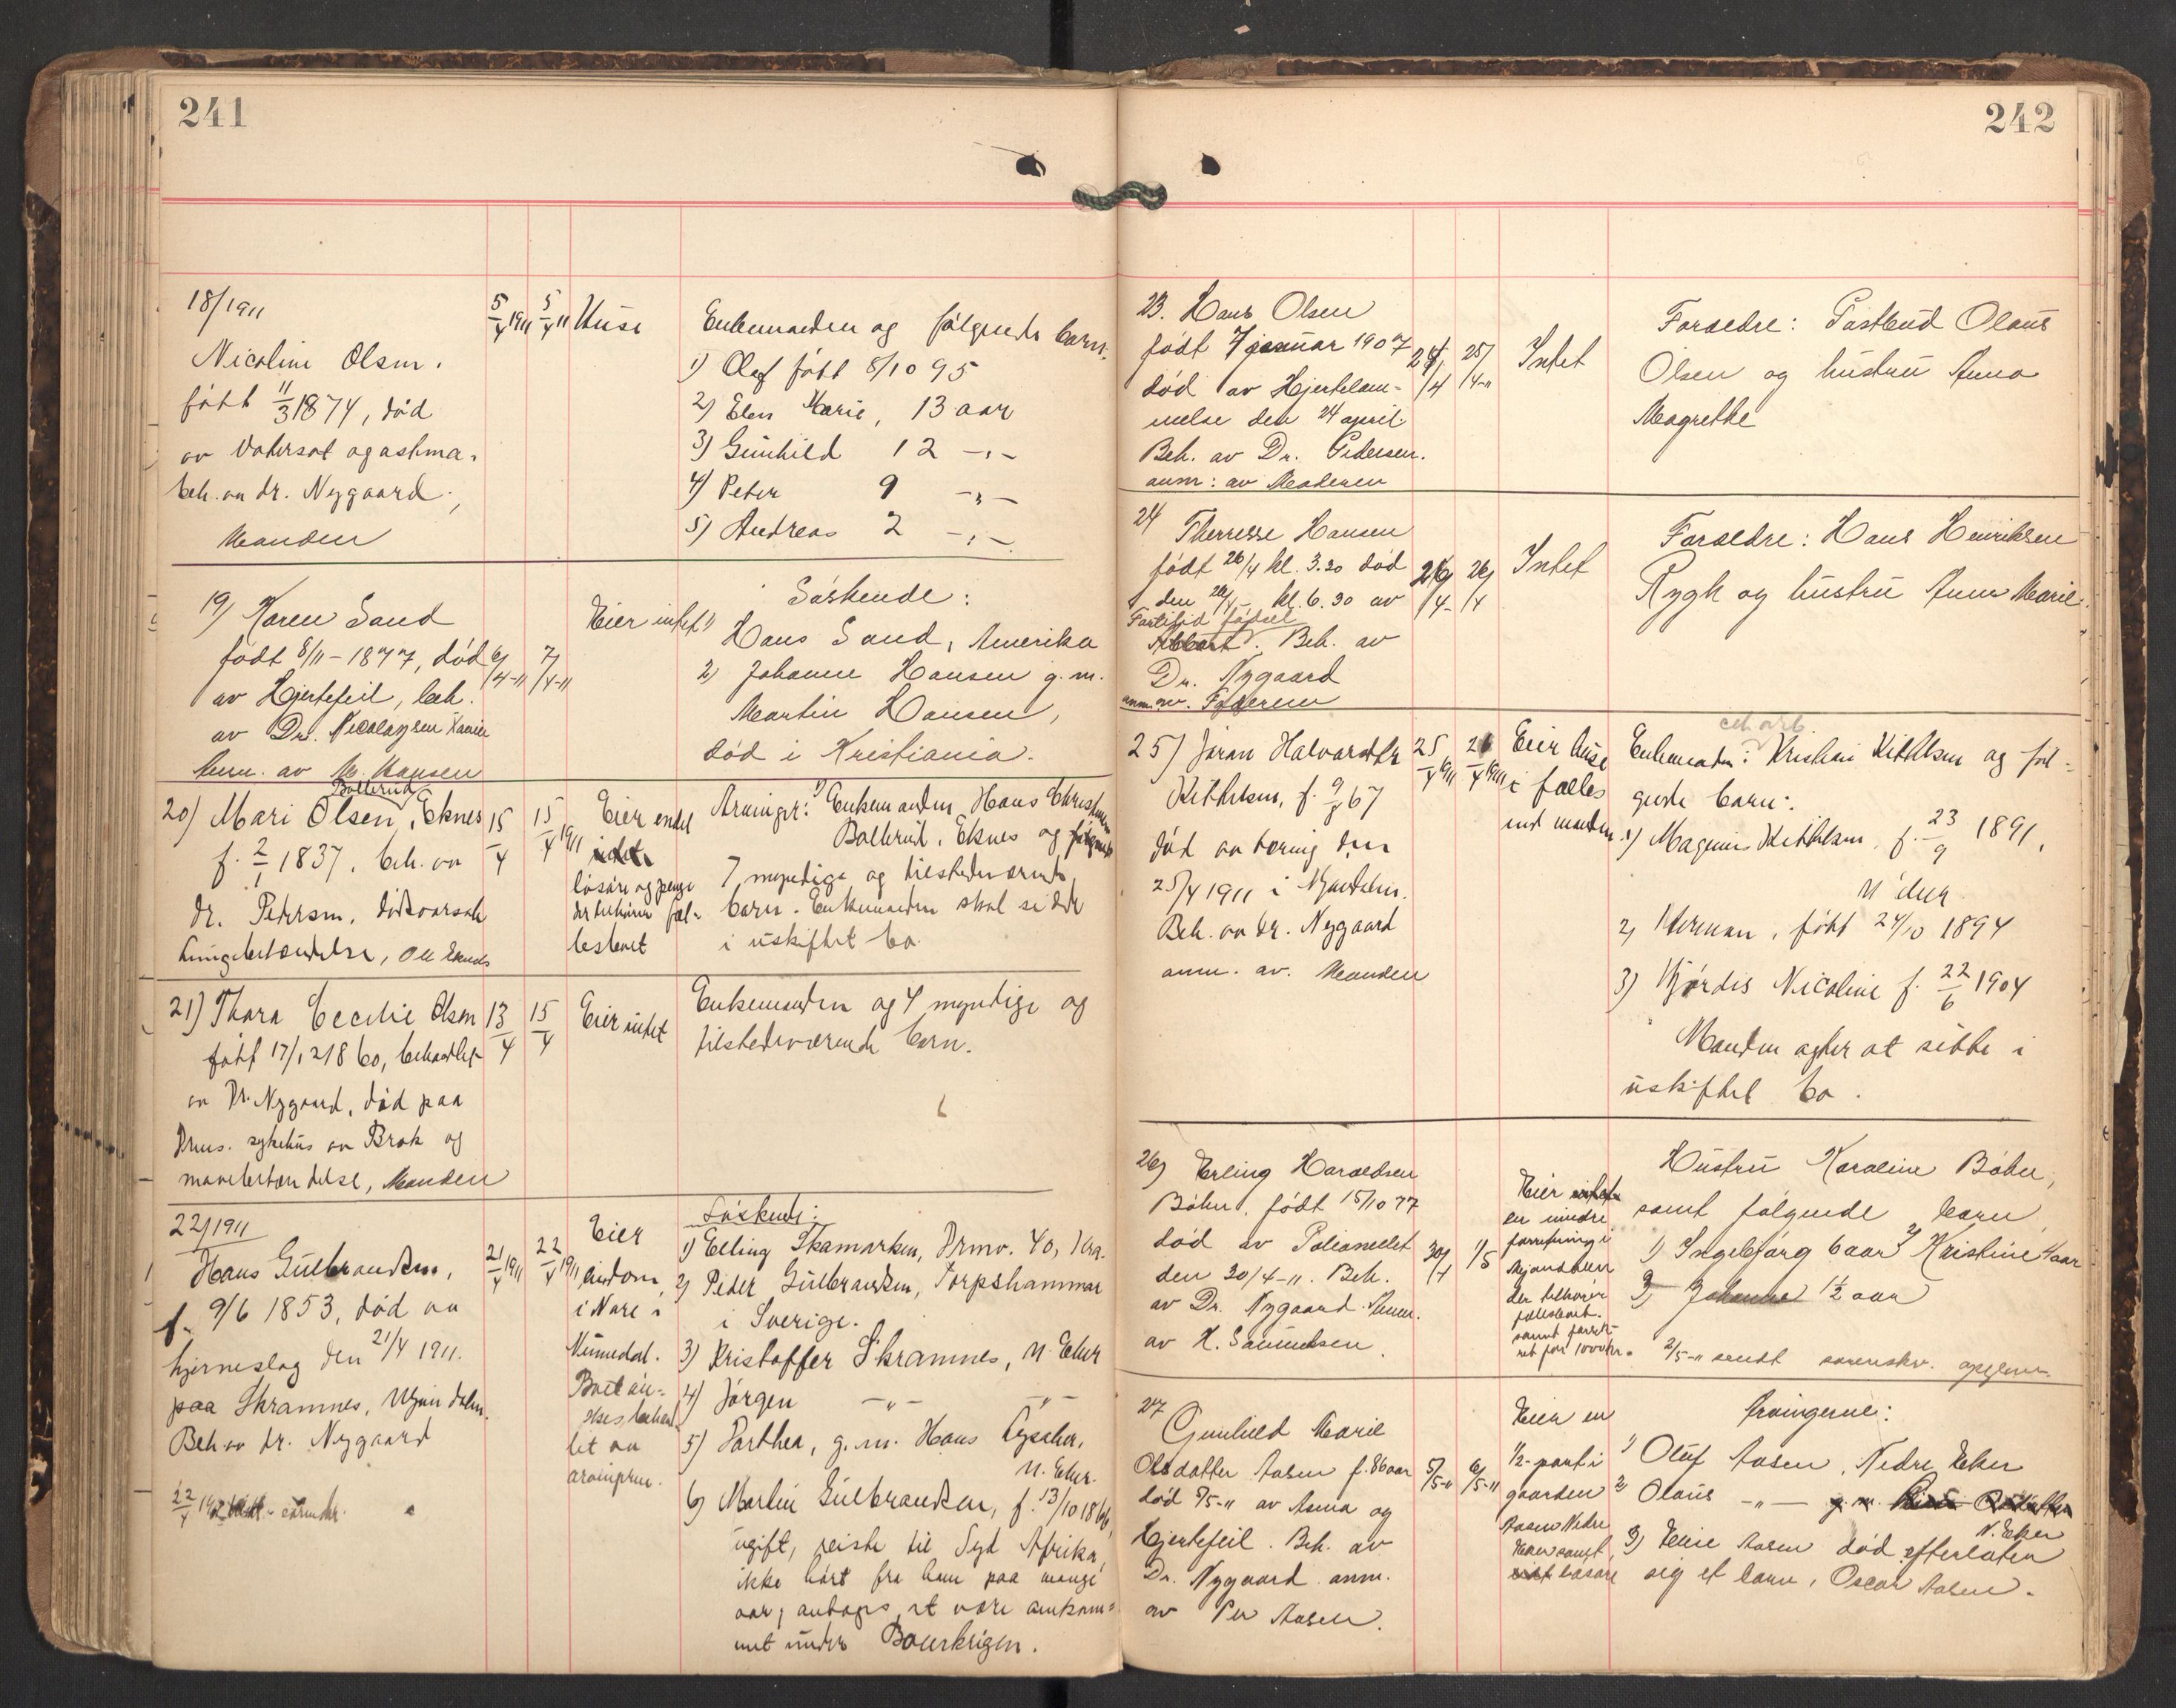 241
18/1911
Nicoline Olsen.
født 11/3 1874, død
av Vatersot og astma.
beh. av dr. Nygaard.,
Manden
5/4 1911
5/4 11
Huse
Enkemanden og følgende barn.
1) Olaf født 8/10 95
2) Elen Marie, 13 aar
3) Gunhild 12 -"-
4) Peter 9 -"-
5) Andreas 2 -"-
19) Karen Sand
født 8/11 - 1877, død
av Hjertefeil, beh.
av Dr. Nicolaysen
Anm. av M. Hansen
6/4-11
7/4-11
Eier intet
Søskende:
1) Hans Sand, Amerika
2) Johanne Hansen g.m.
Martin Hansen,
død i Kristiania.
Bollerud
20) Mari Olsen, Eknes
f. 2/1 1837. beh. av
dr. Pedersen. dødsaarsak
Lungebetændelse, Ole Eknes
15/4
15/4 1911
Eier endel
løsøre og penge
der tilhører fæl-
lesboet
Arvinger: 1) Enkemanden Hans Christensen
Bollerud, Eknes og følgende
7 myndige og tilstedeværende
barn. Enkemanden skal sidde
i uskiftet bo.
21) Thora Cecilie Olsen
født 17/12 1860, behandlet
av Dr. Nygaard, død paa
Drms. sykehus av Brok og
mavebetændelse, Manden
13/4
15/4
Eier intet
Enkemanden og 4 myndige og
tilstedeværende barn.
22/1911
Hans Gulbrandsen,
f. 9/6 1853, død av
hjerneslag den 21/4 1911.
paa Skramnes, Mjøndalen.
Beh. av dr. Nygaard
22/4
21/4 1911
22/4 1911
Eier
eiendom
i Nore i
Numedal.
Boet øn-
skes behand-
let av
arvingerne.
Søskende:
1) Elling Skamarken, Drmv. 40, Kra.
2) Peder Gulbrandsen, Torpshammar
i Sverige.
3) Kristoffer Skramnes, N. Eker
4) Jørgen -"- -"-
5) Dorthea, g.m. Hans
N. Eker.
6) Martin Gulbrandsen, f. 13/10 1866,
ugift, reiste til Syd Afrika,
ikke hørt fra ham paa mange
aar, antages at være omkom-
met under Boerkrigen.
242
23. Hans Olsen
født 7 januar 1907
død av Hjertelam-
melse den 24 april
Beh. av Dr. Pedersen.
anm: av Moderen
24/4
25/4-11
Intet
Foræedre: Postbud Olaus
Olsen og hustru Anna
Magrethe
24 Therresse Hansen
født 26/4 kl. 3.20 død
den 26/4 - kl. 6.30 av
Fortitid fødsel
Beh. av
Dr. Nygaard
anm. av. Faderen
26/4-
26/4
Intet
Foræedre: Hans Henriksen
Rygh og hustru Anna Marie.
25) Jøran Halvordsdtr
Kittilsen, f. 9/8 67
død av tæring den
25/4 1911 i Mjøndalen.
Beh. av dr. Nygaard
anm. av. Manden
25/4 1911
26/4 1911
Eier huse
i fælles
med manden
Enkemanden: Kristian Kittilsen og føl-
gende barn:
1) Magnus Kittilsen, f. 23/9 1891,
N. Eker
2) Herman, født 24/10 1894
3) Hjørdis Nicoline f. 22/6 1904
Manden agter at sitte i
uskiftet bo.
26) Erling Haraldsen
Bøhn, født 15/10 77
død av Polionellet
den 30/4-11. Beh.
av Dr. Nygaard. Anm.
av H. Samuelsen.
30/4
1/5
Eier intet
en mindre
forretning i
Mjøndalen
der tilhører
fællesboet.
samt
ret for 1000 kr.
Hustru Karoline Bøhn,
samt følgende barn
1) Ingebjørg 6 aar 2) Kristine 4 aar
3) Johanne 1½ aar
2/5-11 sendt sorenskr. opgave
27 Gunhild Marie
Olsdatter Aasen f. 86 aar
død 5/5-11 av Asma og
Hjertefeil. Beh. av
Dr. Nygaard anm.
av Per Aasen.
5/5-11
6/5-11
Eier en
½-part i
gaarden
Aasen Nedre
Eker samt
løsøre
Arvingerne:
1) Oluf Aasen, Nedre Eker
2) Olaus -"- g.m.
N. Eker
3) Elise Aasen død efterlaten
sig et barn, Oscar Aasen.